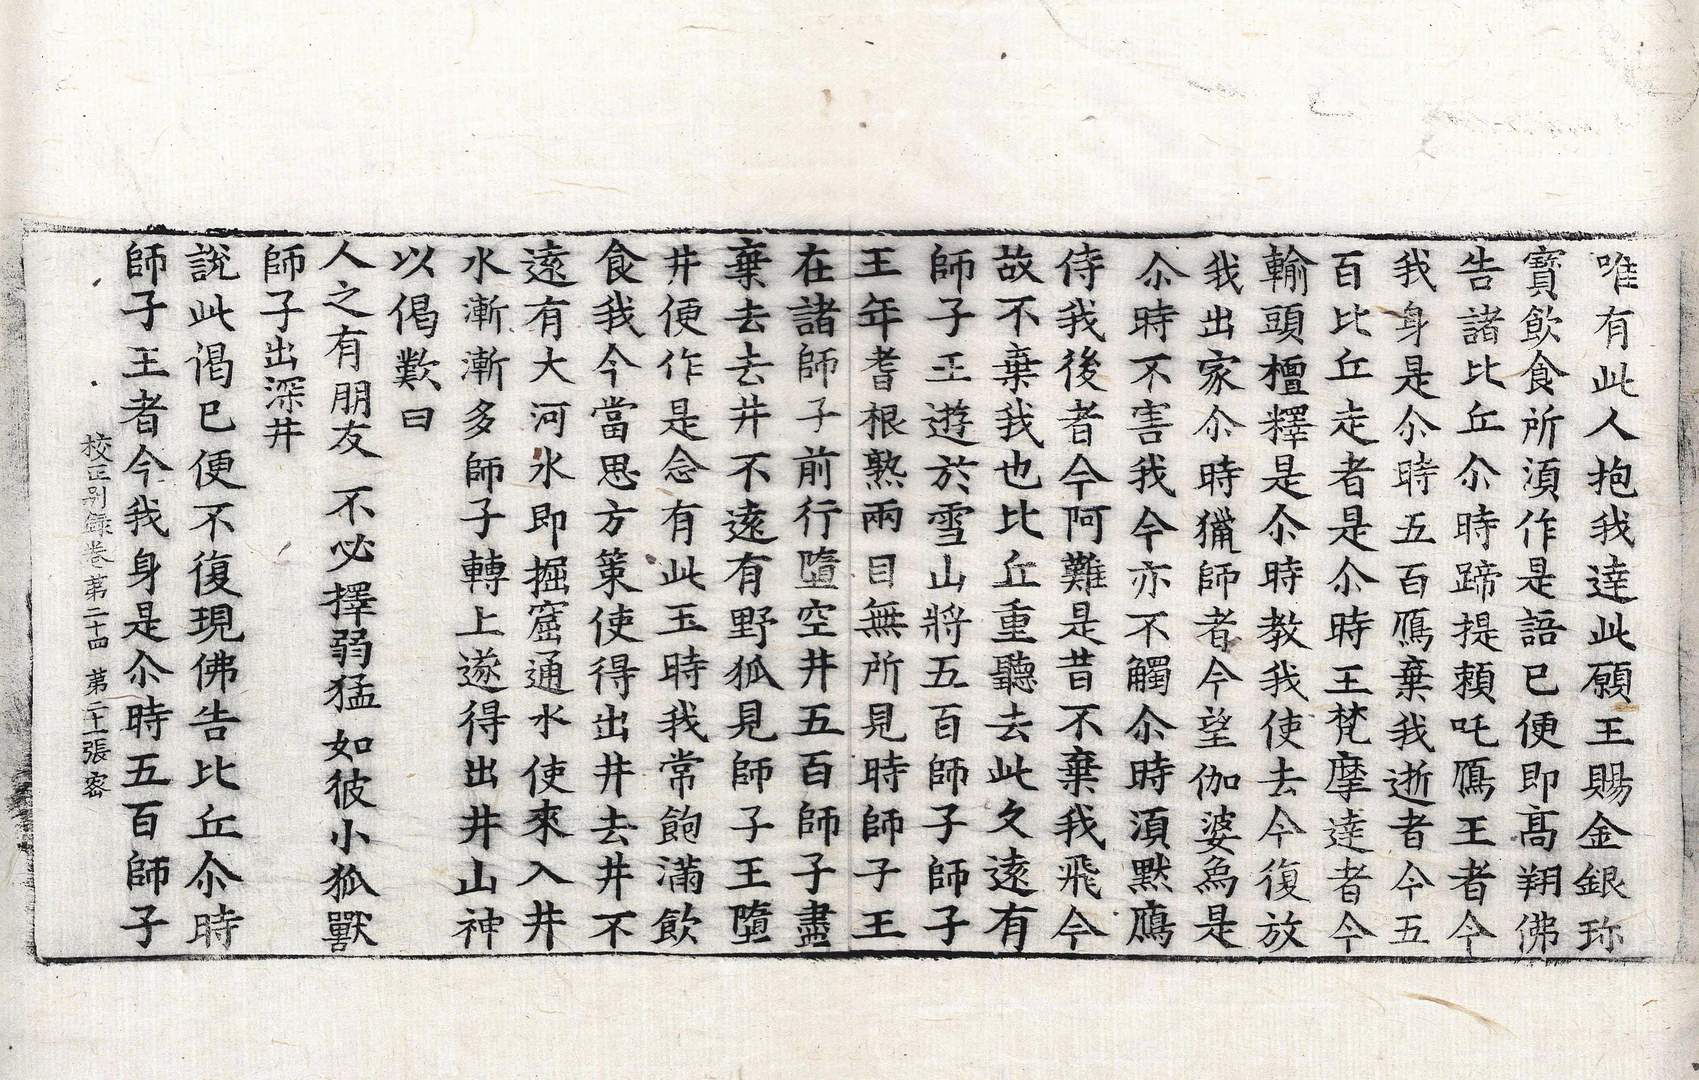 唯有此人抱我達此願王賜金銀珎
寶飲食所湏作是語已便即髙翔佛
告諸比丘尒時蹄提頼吒鴈王者今
我身是尒時五百鴈棄我逝者今五
百比丘走者是尒時王梵摩達者今
輸頭檀釋是尒時教我使去今復放
我出家尒時獵師者今望伽婆為是
尒時不害我今亦不觸尒時湏默鴈
侍我後者今阿難是昔不棄我飛今
故不棄我也比丘重聽去此久遠有
師子王遊於雪山將五百師子師子
王年耆根熟兩目無所見時師子王
在諸師子前行墮空井五百師子盡
棄去去井不遠有野狐見師子王墮
井便作是念有此玉時我常飽滿飲
食我今當思方策使得出井去井不
遠有大河水即掘窟通水使來入井
水漸漸多師子轉上遂得出井山神
以偈歎曰
人之有朋友 不必擇弱猛 如彼小狐獸
師子出深井
說此偈已便不復現佛告比丘尒時
師子王者今我身是尒時五百師子
校正别録卷第二十四 第二十張 密